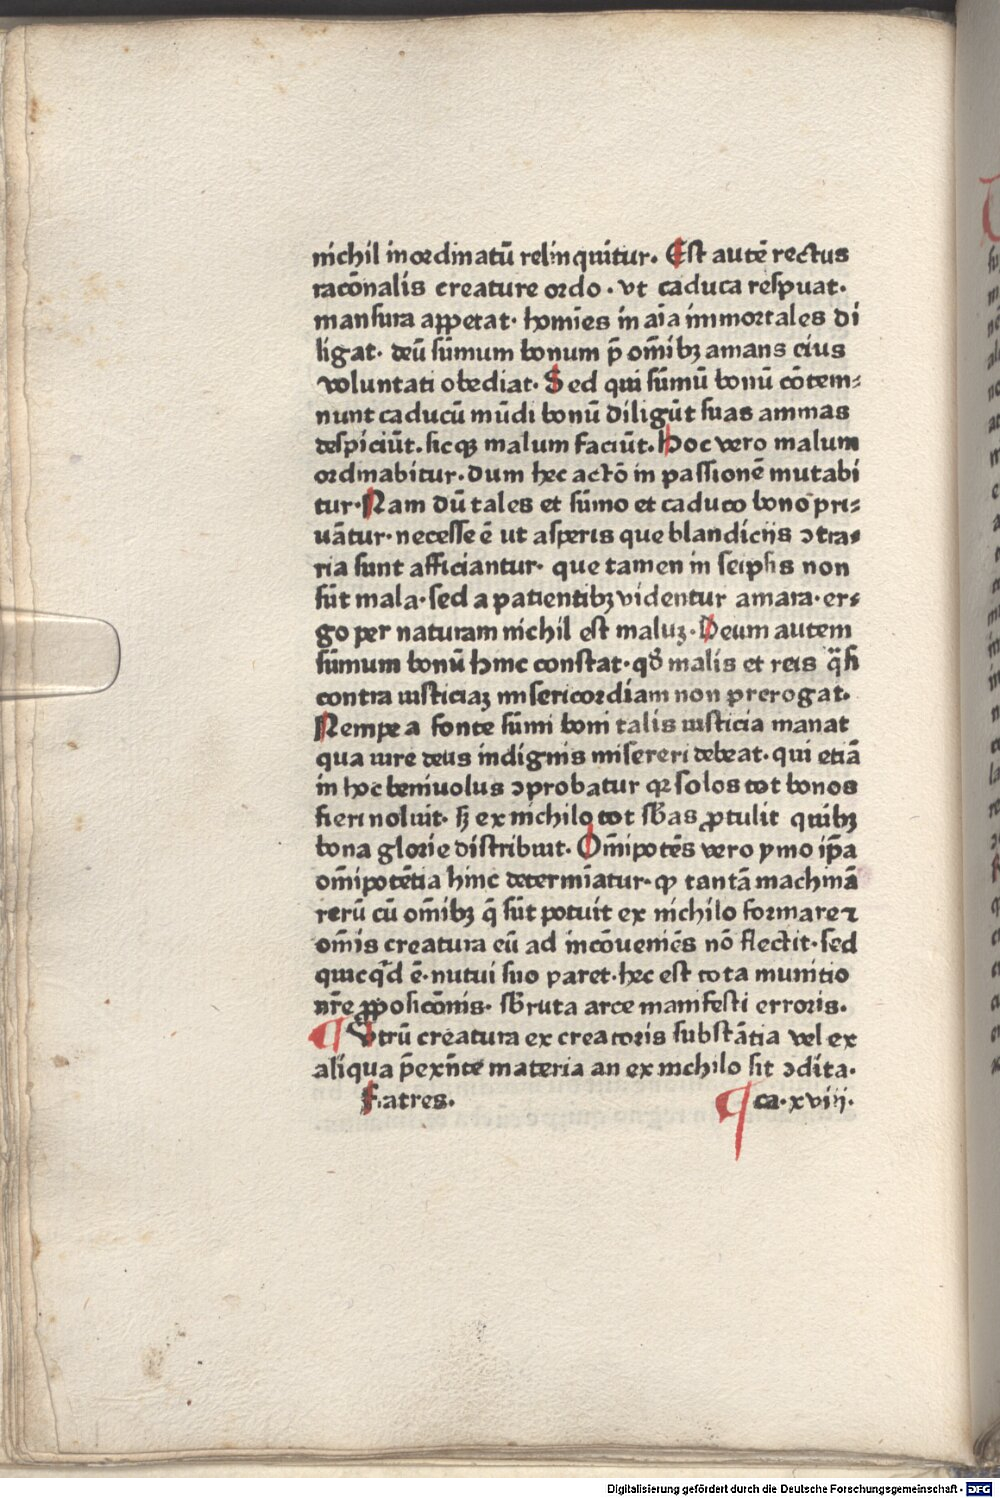 nichil inordinatū relinquitur. Est autē rectus
racōnalis creature ordo · vt caduca respuat·
mansura appetat· homīes in aīa immortales di
ligat· deū sūmum bonum p̄ om̄ibꝫ amans eius
voluntati obediat· Sed qui sūmū bonū cōtem⸗
nunt caducū mūdi bonū diligūt suas animas
despiciūt. sicqꝫ malum faciūt. Hoc vero malum
ordinabitur. dum hec actō in passionē mutabi
tur· Nam dū tales et sūmo et caduco bono pri⸗
uātur· necesse ē ut asperis que blandicijs ↄtra⸗
ria sunt afficiantur· que tamen in seipsis non
sūt mala· sed a patientibꝫ videntur amara· er⸗
go per naturam nichil est maluꝫ· Deum autem
sūmum bonū hinc constat· qđ malis et reis q̈si
contra iusticiaꝫ misericordiam non prerogat.
Nempe a fonte sūmi boni talis iusticia manat
qua iure deus indignis misereri debeat· qui etiā
in hoc beniuolus ↄprobatur qꝛ solos tot bonos
fieri noluit· sꝫ ex nichilo tot sb̄as ꝓtulit quibꝫ
bona glorie distribuit. Om̄ipotēs vero ymo ip̄a
om̄ipotētia hinc determīatur· ꝙ tantā machinā
rerū cū om̄ibꝫ q̄ sūt potuit ex nichilo formare ꝛ
om̄is creatura eū ad incōueniēs nō flectit· sed
quicq̄d ē· nutui suo paret· hec est tota munitio
nr̄e ꝓposicōnis· sb̄ruta arce manifesti erroris.
¶ Vtrū creatura ex creatoris substātia vel ex
aliqua p̄exn̄te materia an ex nichilo sit ↄdita·
Fratres. ¶ ca· xviij·
Digitalisierung gefördert durch die Deutsche Forschungsgemeinschaft - DFG